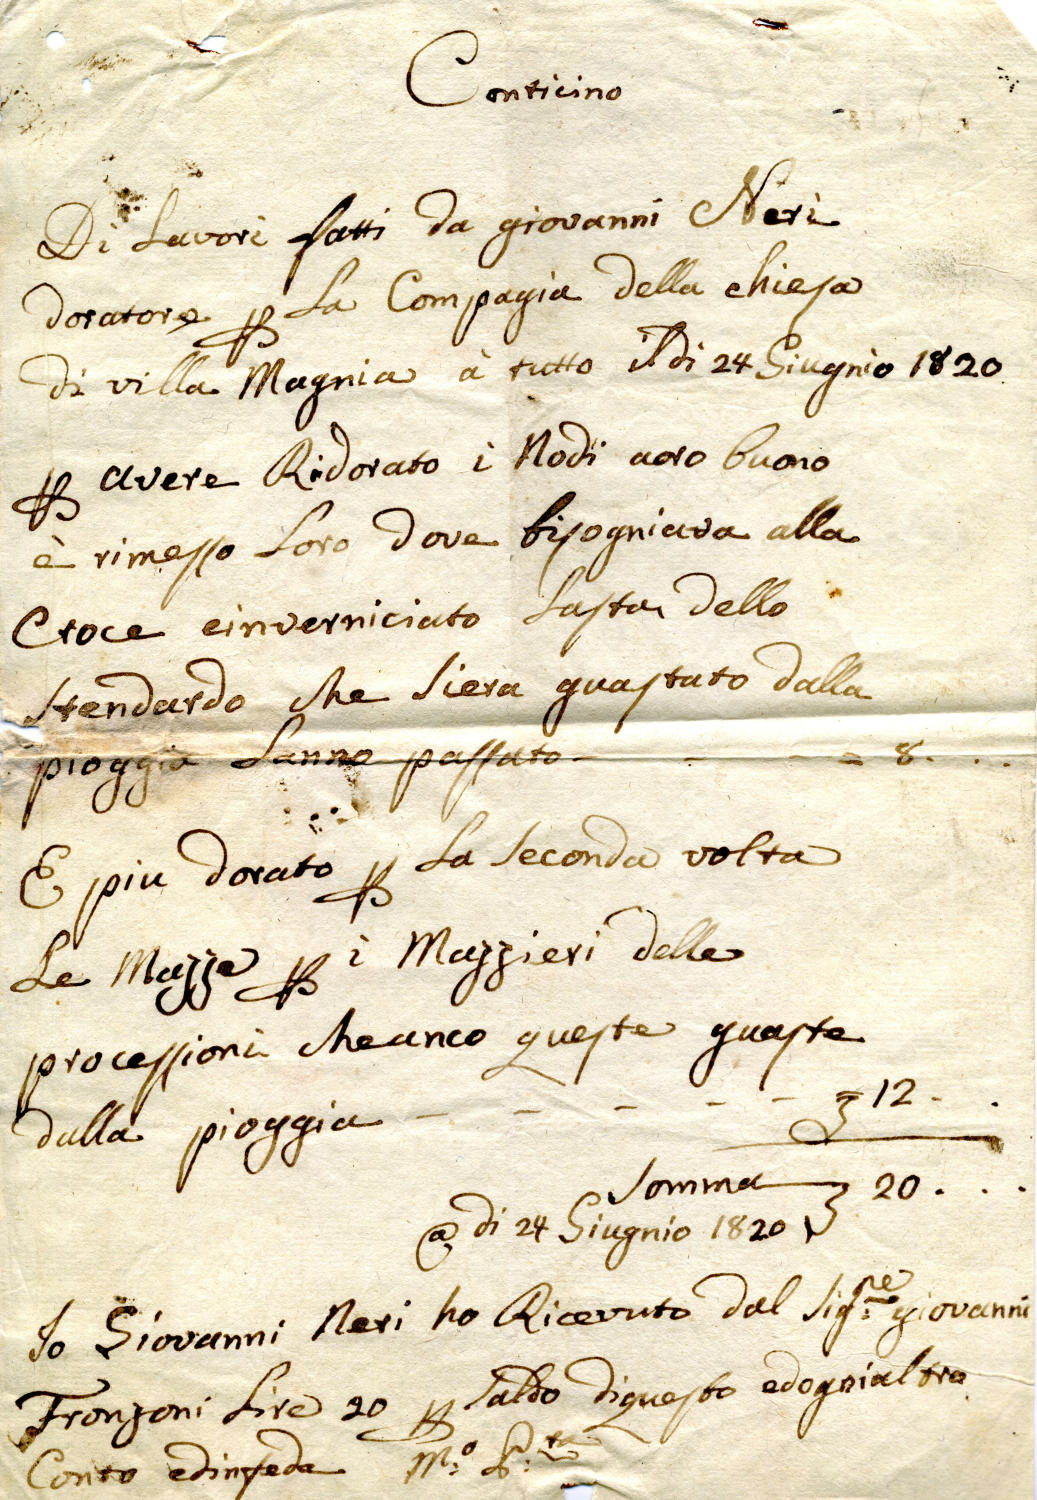 Conticino
Di Lavori fatti da giovanni Neri
doratore P La Compagia della chiesa
di villa Magnia à tutto il di 24 Giugnio 1820
P avere Ridorato i Nodi aoro buono
è rimesso Loro dove bisogniava alla
Croce einverniciato Lasta dello
Stendardo che siera guastato dalla
pioggia Lanno passato - - - = 8 . . .
E piu dorato P La seconda volta
Le Mazze P i Mazzieri delle
processioni cheanco queste guaste
dalla pioggia - - - - - - 12 . .
Somma 20 . . .
@ di 24 Giugnio 1820
Io Giovanni Neri ho Ricevuto dal Sig:re giovanni
Fronzoni Lire 20 P Saldo diquesto edognialtro
Conto edinfede M:o P:ta